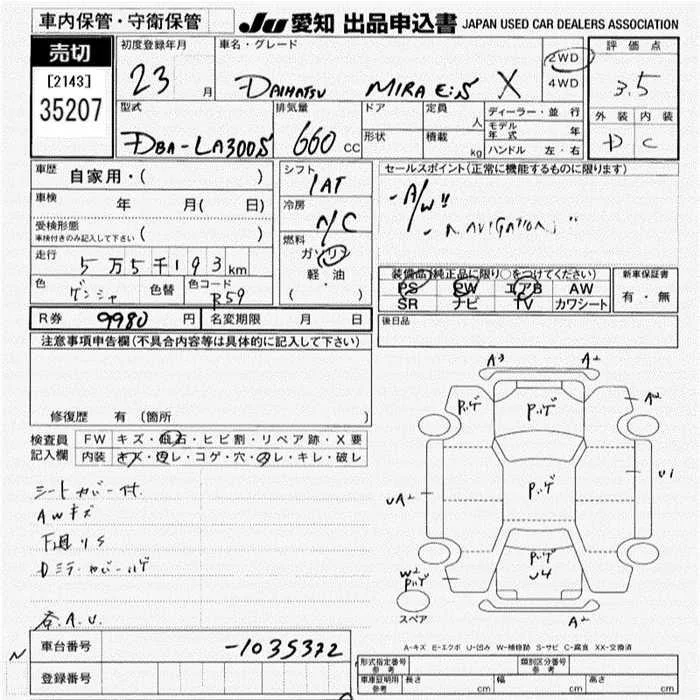 車内保管・守衛保管
JU 愛知 出品申込書 JAPAN USED CAR DEALERS ASSOCIATION
売切
[2143]
35207
初度登録年月
23 月
車名・グレード
DAIHATSU MIRA E:S X
2WD
4WD
評価点
3.5
外装 内装
D C
型式
DBA-LA300S
排気量
660 cc
ドア
定員 人
形状
積載 kg
ディーラー・並行
モデル年式 年
ハンドル 左・右
車歴 自家用・( )
車検 年 月( 日)
受検形態
車検付きのみ記入して下さい ( )
走行
5万5千193km
色
色替
色コード
R59
シフト
1AT
冷房
A/C
燃料
ガソリン
軽・油
( )
セールスポイント(正常に機能するものに限ります)
- A/W"
- NAVIGATION"
装備品(純正品に限り○をつけてください)
PS PW エアB AW
SR ナビ TV カワシート
新車保証書
有・無
R券 9980 円 名変期限 月 日
後日品
注意事項申告欄(不具合内容等は具体的に記入して下さい)
修復歴 有 (箇所 )
検査員
記入欄
FW キズ・飛石・ヒビ割・リペア跡・X要
内装 キズ・汚レ・コゲ・穴・スレ・キレ・破レ
シートカバー付
AWキズ
下廻りS
Dミラーカバーハゲ
A3 A2
Pハゲ Pハゲ A2
UA2 Pハゲ U1
Pハゲ
U4
W2
Pハゲ
A2
スペア
A-キズ E-エクボ U-凹み W-補修跡 S-サビ C-腐食 XX-交換済
N
車台番号 -1035372
登録番号
形式指定番号
参考
類別区分番号
参考
車庫証明用
参考
長さ cm 幅 cm 高さ cm